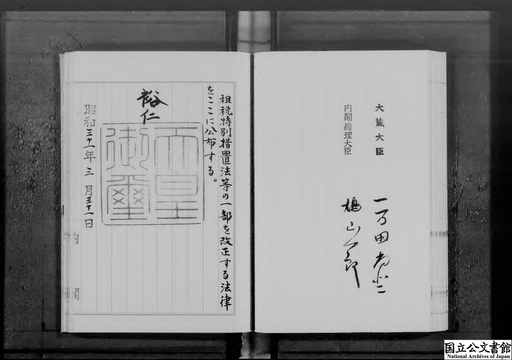 大蔵大臣
一万田尚登
内閣総理大臣
鳩山一郎
租税特別措置法等の一部を改正する法律
をここに公布する。
裕仁
天皇
御璽
昭和三十一年三月三十一日
内閣
国立公文書館
National Archives of Japan